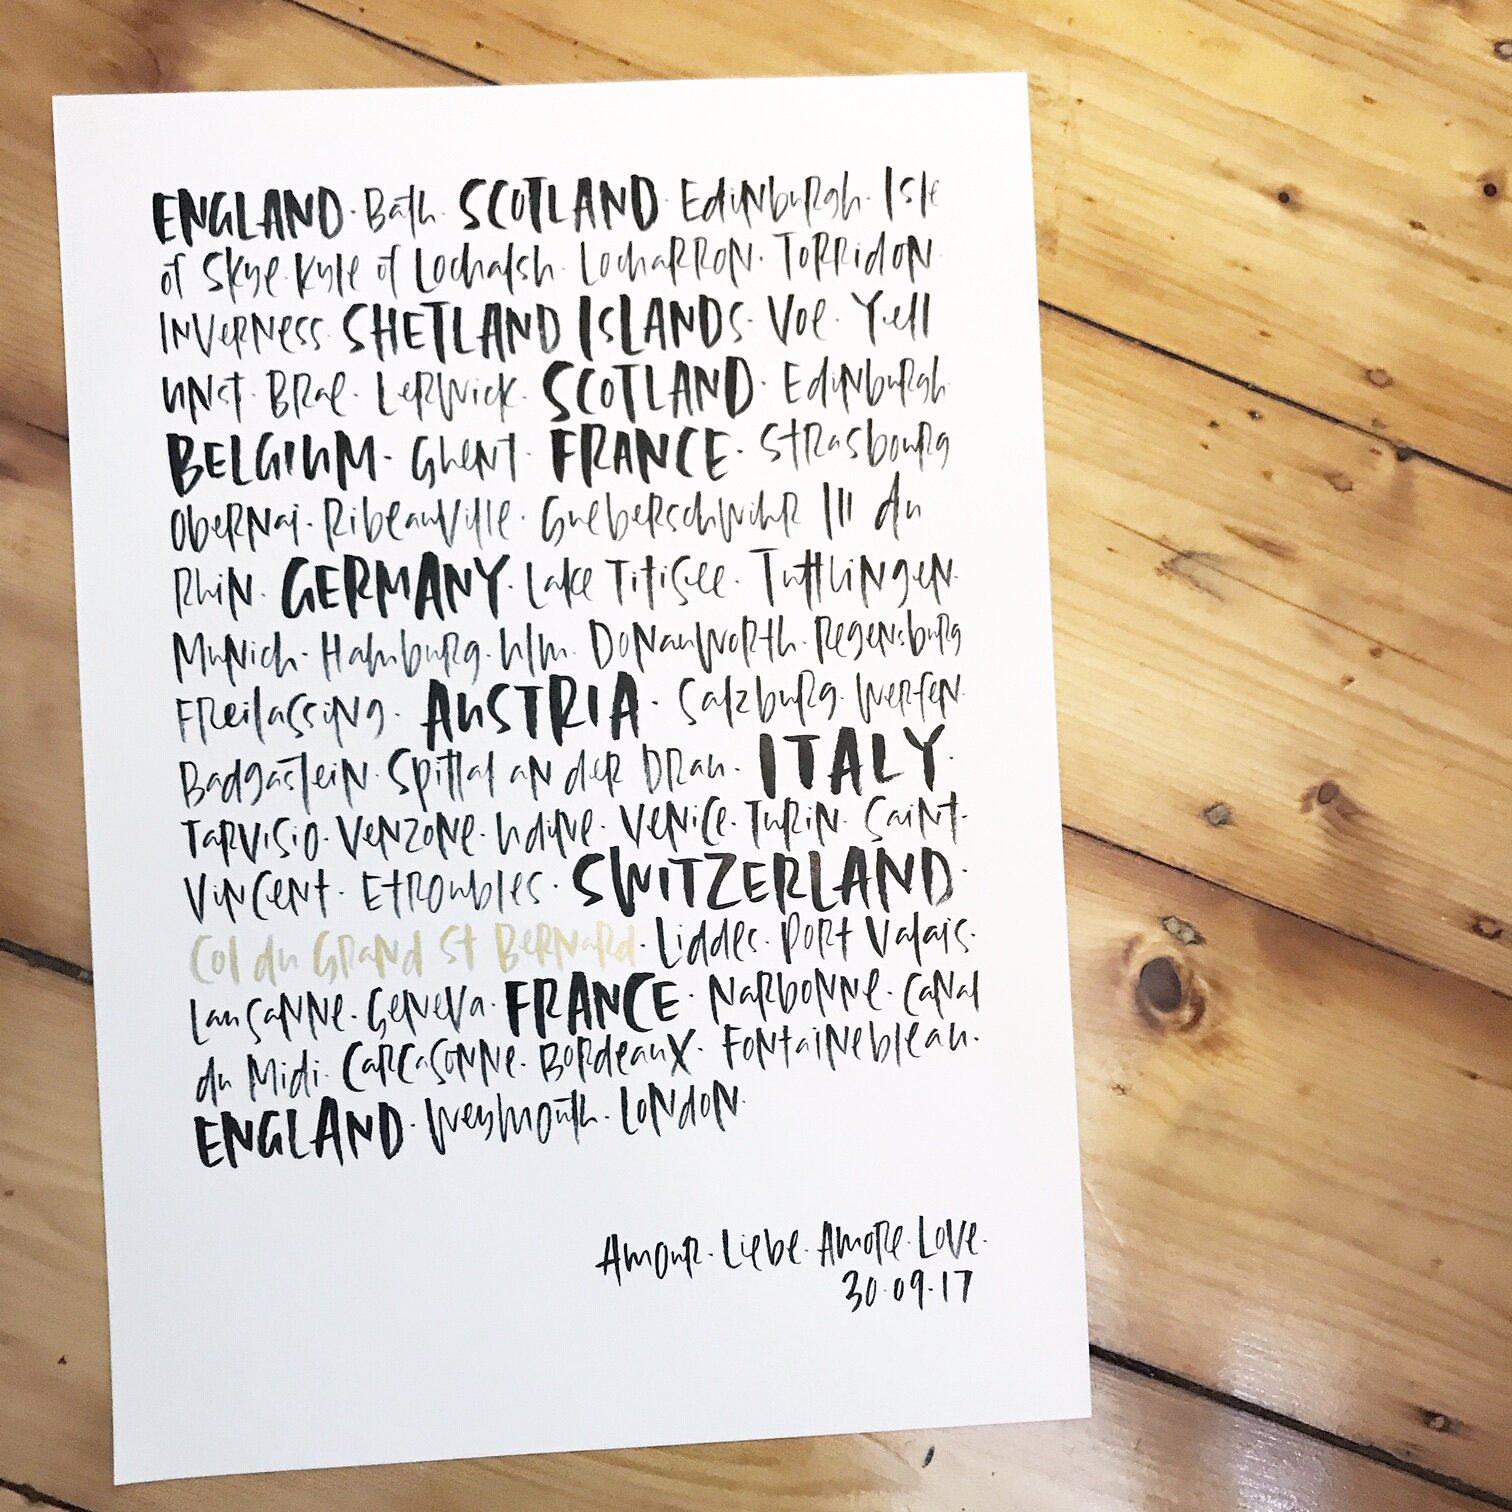 ENGLAND · Bath · SCOTLAND · Edinburgh · Isle
of Skye · Kyle of Lochalsh · Locharron · Torridon ·
Inverness · SHETLAND ISLANDS · Voe · Yell
Unst · Brae · Lerwick · SCOTLAND · Edinburgh
BELGIUM · Ghent · FRANCE · Strasbourg
Obernai · Ribeauville · Gueberschwihr Ill du
Rhin · GERMANY · Lake Titisee · Tuttlingen ·
Munich · Hamburg · Ulm · Donauworth · Regensburg
Freilassing · AUSTRIA · Salzburg · Werfen ·
Badgastein · Spittal an der Drau · ITALY ·
Tarvisio · Venzone · Udine · Venice · Turin · Saint-
Vincent · Etroubles · SWITZERLAND ·
Col du Grand St Bernard · Liddes · Port Valais ·
Lausanne · Geneva · FRANCE · Narbonne · Canal
du Midi · Carcasonne · Bordeaux · Fontainebleau ·
ENGLAND · Weymouth · London ·
Amour · Liebe · Amore · Love ·
30·09·17